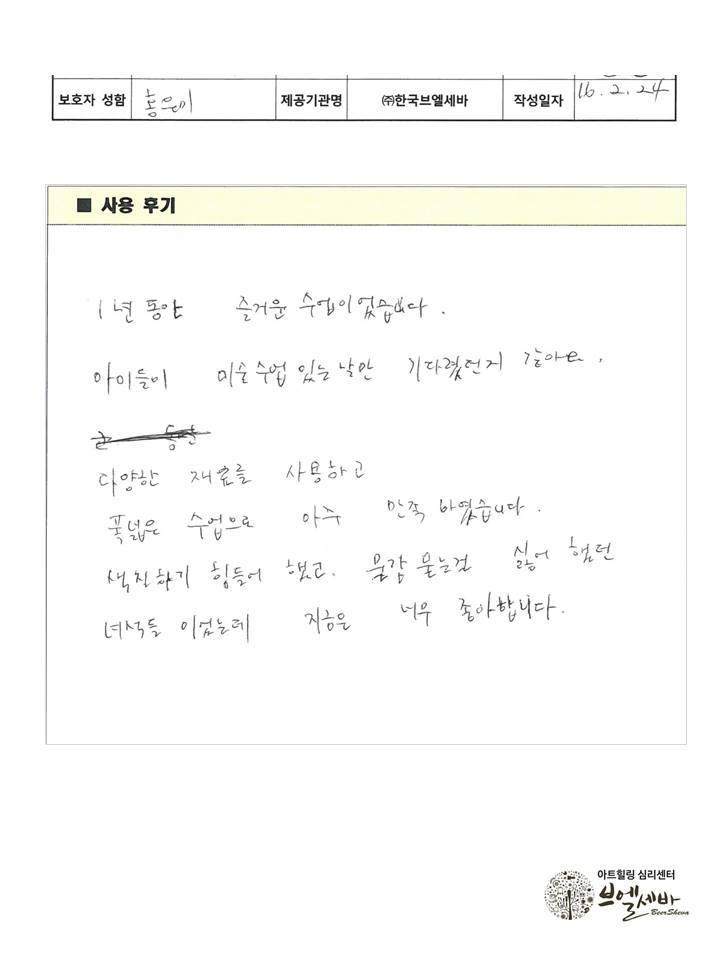 보호자 성함 홍은미 제공기관명 ㈜한국브엘세바 작성일자 16. 2. 24
■ 사용 후기
1년 동안 즐거운 수업이었습니다.
아이들이 미술수업 있는 날만 기다렸던지 같아요.
다양한 재료를 사용하고
폭넓은 수업으로 아주 만족하였습니다.
색칠하기 힘들어 했고. 물감 묻는걸 싫어 했던
녀석들 이었는데 지금은 너무 좋아합니다.
아트힐링 심리센터
브엘세바
BeerSheva